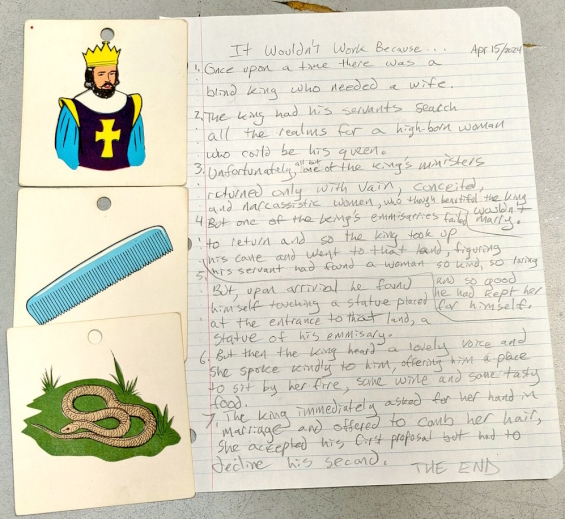 It Wouldn't Work Because... Apr 15/2024
1. Once upon a time there was a
blind king who needed a wife.
2. The king had his servants search
all the realms for a high-born woman
who could be his queen.
3. Unfortunately, all but one of the king's ministers
returned only with vain, conceited,
and narcissistic women, who though beautiful the king
wouldn't marry.
4 But one of the king's emissarries failed
to return and so the king took up
his cane and went to that land, figuring
his servant had found a woman so kind, so loving
and so good
he had kept her
for himself.
5. But, upon arrival he found
himself touching a statue placed
at the entrance to that land, a
statue of his emmisary.
6. But then the king heard a lovely voice and
she spoke kindly to him, offering him a place
to sit by her fire, some wine and some tasty
food.
7. The king immediately asked for her hand in
marriage and offered to comb her hair,
she accepted his first proposal but had to
decline his second.
THE END